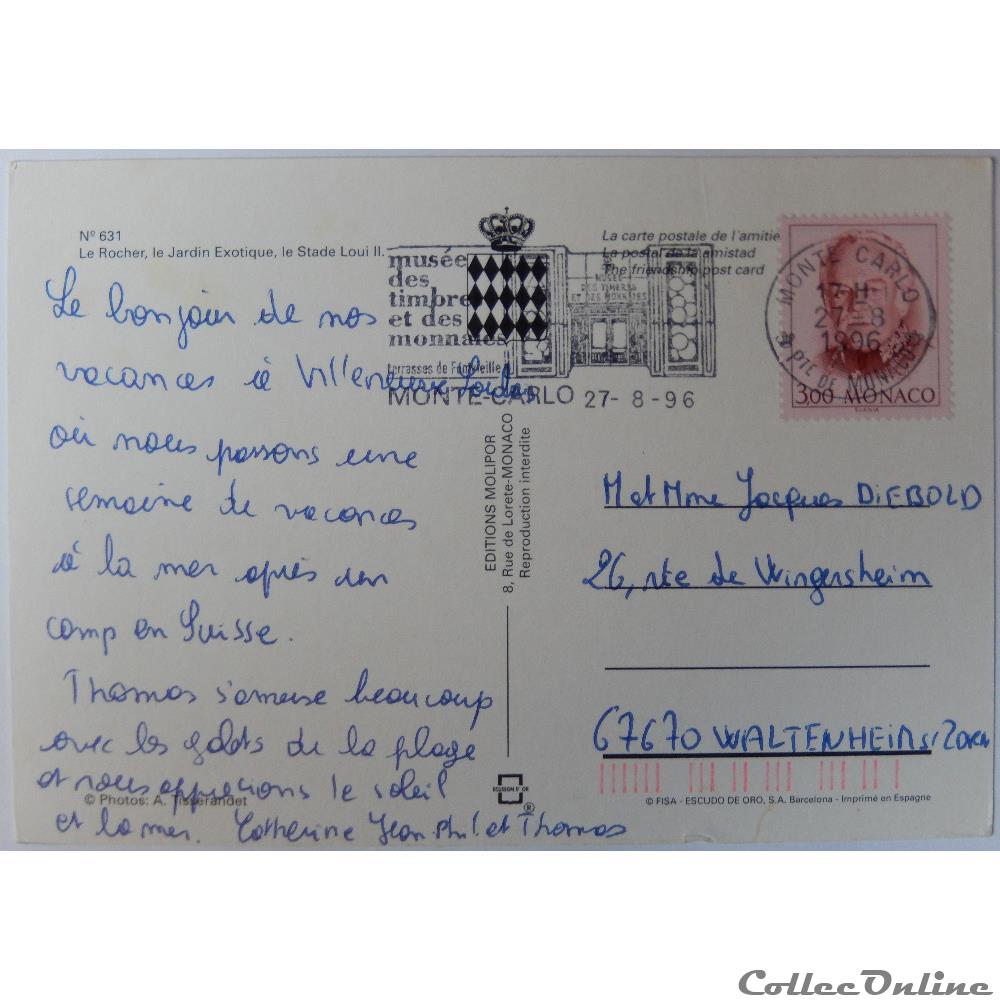 Nº 631
Le Rocher, le Jardin Exotique, le Stade Loui II.
La carte postale de l'amitie
La postal de la amistad
The friendship post card
musée
des
timbre
et des
monnaies
terrasses de Fontvieille
MONTE-CARLO 27- 8 -96
MUSEE
DES TIMBRES
ET DES MONNAIES
MONTE CARLO
17 H
27 - 8
1996
PTE DE MONACO
3,00 MONACO
SLANIA
Le bonjour de nos
vacances à Villeneuve Loubet
où nous passons une
semaine de vacances
à la mer après un
camp en Suisse.
Thomas s'amuse beaucoup
avec les galets de la plage
et nous apprécions le soleil
et la mer. Catherine Jean-Phil. et Thomas
© Photos: A. Tisserandet
EDITIONS MOLIPOR
8, Rue de Lorete-MONACO
Reproduction interdite
ECUSSON D' OR
®
M et Mme Jacques DiEBOLD
26, rte de Wingersheim
67670 WALTENHEIM s/ZORN
© FISA - ESCUDO DE ORO, S.A. Barcelona - Imprimé en Espagne
CollecOnline